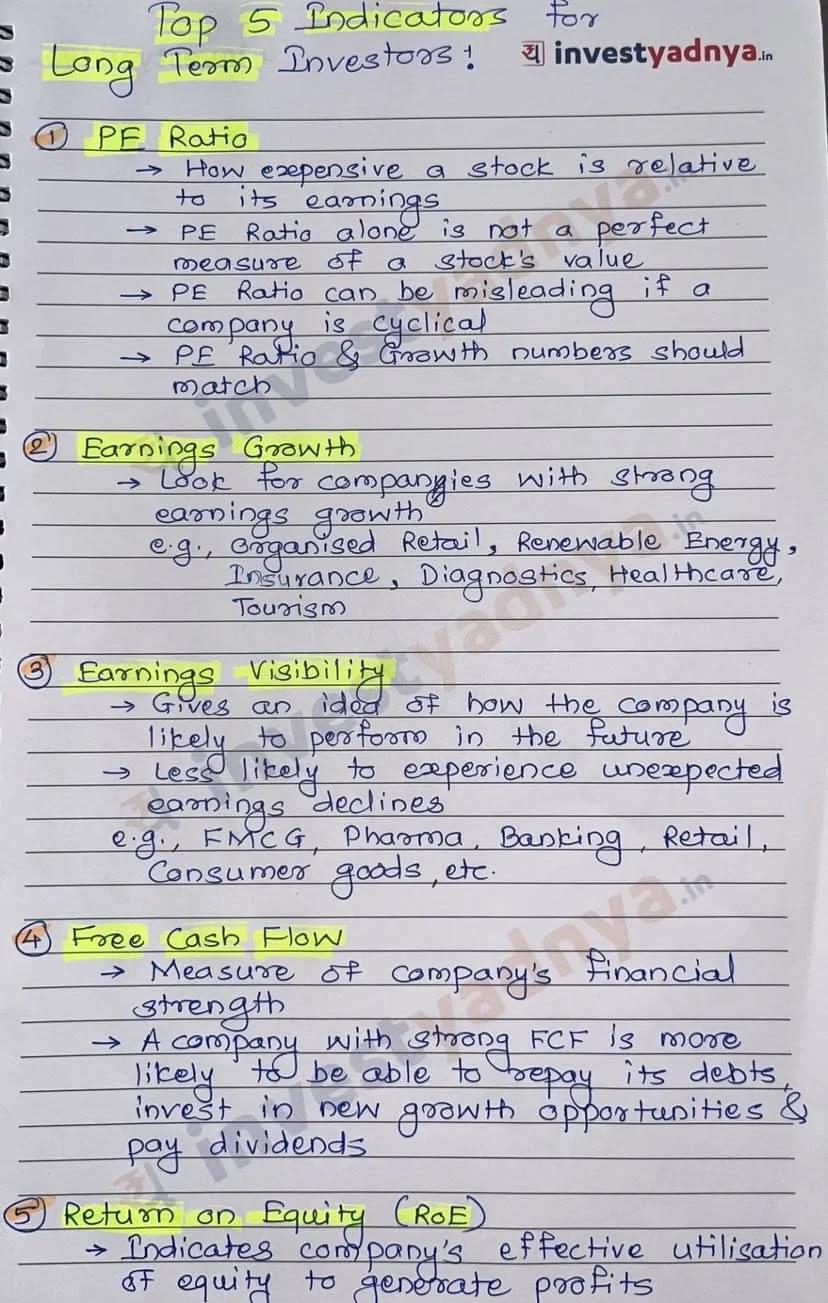 Top 5 Indicators for
Long Term Investors!
य investyadnya.in
① PE Ratio
→ How expensive a stock is relative
to its earnings
→ PE Ratio alone is not a perfect
measure of a stock's value
→ PE Ratio can be misleading if a
company is cyclical
→ PE Ratio & Growth numbers should
match
② Earnings Growth
→ Look for companies with strong
earnings growth
e.g., Organised Retail, Renewable Energy,
Insurance, Diagnostics, Healthcare,
Tourism
③ Earnings Visibility
→ Gives an idea of how the company is
likely to perform in the future
→ Less likely to experience unexpected
earnings declines
e.g., FMCG, Pharma, Banking, Retail,
Consumer goods, etc.
④ Free Cash Flow
→ Measure of company's financial
strength
→ A company with strong FCF is more
likely to be able to repay its debts,
invest in new growth opportunities &
pay dividends
⑤ Return on Equity (RoE)
→ Indicates company's effective utilisation
of equity to generate profits
य investyadnya.in
य investyadnya.in
य investyadnya.in